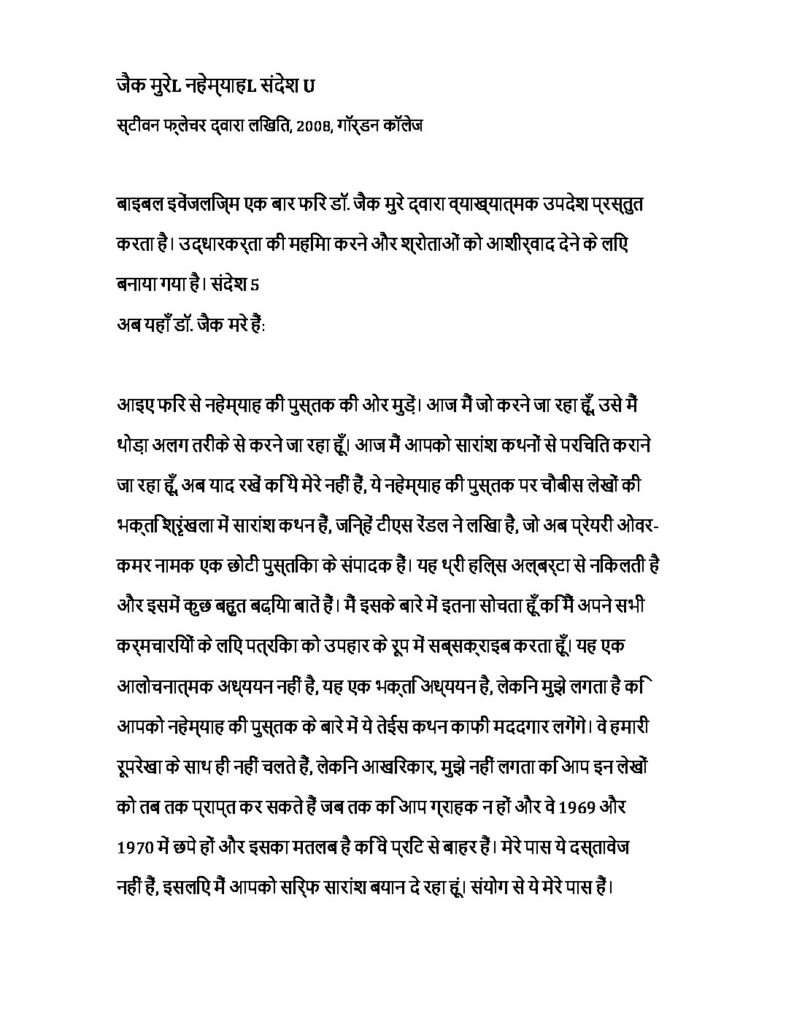 जैक मुरेL नहेम्याहL संदेश U
स्टीवन फ्लेचर द्वारा लिखित, 2008, गॉर्डन कॉलेज
बाइबल इवेंजलिज्म एक बार फिर डॉ. जैक मुरे द्वारा व्याख्यात्मक उपदेश प्रस्तुत
करता है। उद्धारकर्ता की महिमा करने और श्रोताओं को आशीर्वाद देने के लिए
बनाया गया है। संदेश 5
अब यहाँ डॉ. जैक मरे हैं:
आइए फिर से नहेम्याह की पुस्तक की ओर मुड़ें। आज मैं जो करने जा रहा हूँ, उसे मैं
थोड़ा अलग तरीके से करने जा रहा हूँ। आज मैं आपको सारांश कथनों से परिचित कराने
जा रहा हूँ, अब याद रखें कि ये मेरे नहीं हैं, ये नहेम्याह की पुस्तक पर चौबीस लेखों की
भक्ति श्रृंखला में सारांश कथन हैं, जिन्हें टीएस रेंडल ने लिखा है, जो अब प्रेयरी ओवर-
कमर नामक एक छोटी पुस्तिका के संपादक हैं। यह थ्री हिल्स अल्बर्टा से निकलती है
और इसमें कुछ बहुत बढ़िया बातें हैं। मैं इसके बारे में इतना सोचता हूँ कि मैं अपने सभी
कर्मचारियों के लिए पत्रिका को उपहार के रूप में सब्सक्राइब करता हूँ। यह एक
आलोचनात्मक अध्ययन नहीं है, यह एक भक्ति अध्ययन है, लेकिन मुझे लगता है कि
आपको नहेम्याह की पुस्तक के बारे में ये तेईस कथन काफी मददगार लगेंगे। वे हमारी
रूपरेखा के साथ ही नहीं चलते हैं, लेकिन आखिरकार, मुझे नहीं लगता कि आप इन लेखों
को तब तक प्राप्त कर सकते हैं जब तक कि आप ग्राहक न हों और वे 1969 और
1970 में छपे हों और इसका मतलब है कि वे प्रिंट से बाहर हैं। मेरे पास ये दस्तावेज
नहीं हैं, इसलिए मैं आपको सिर्फ सारांश बयान दे रहा हूं। संयोग से ये मेरे पास हैं।